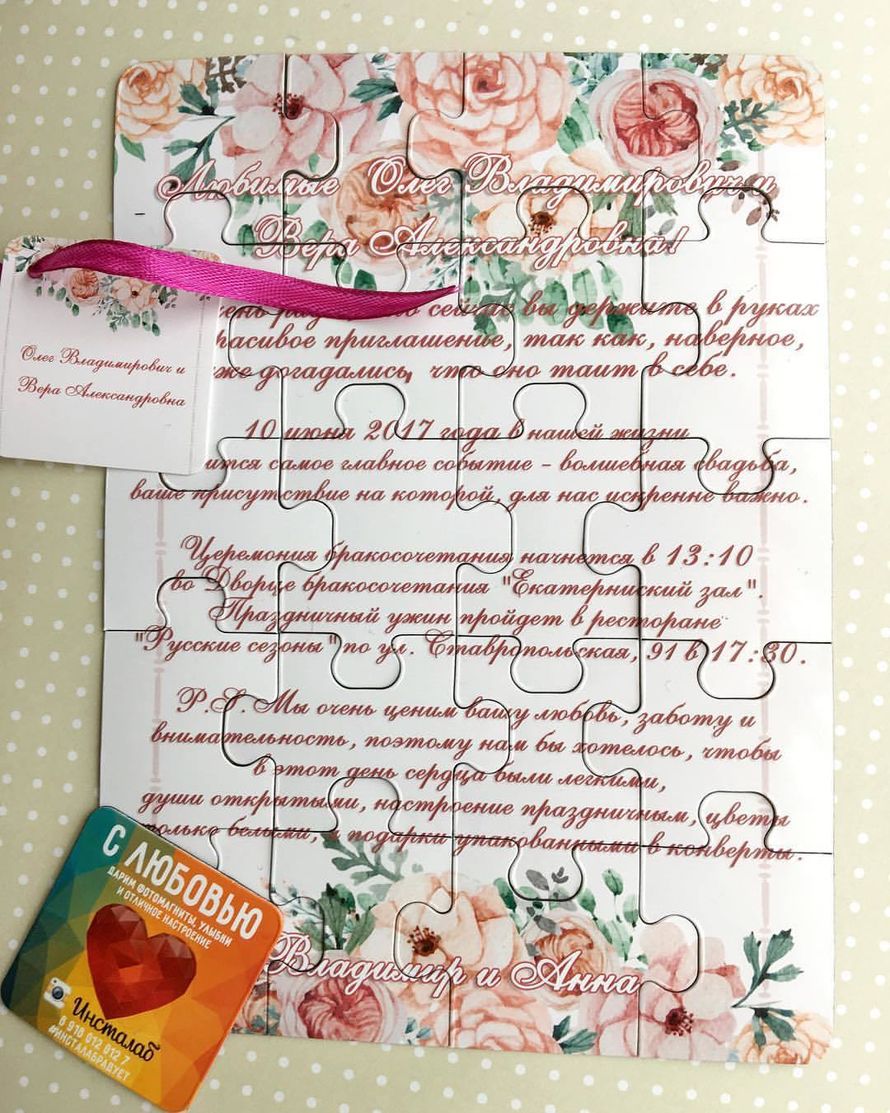 Любимые Олег Владимирович и
Вера Александровна!
сейчас вы держите в руках
красивое приглашение, так как, наверное,
уже догадались, что оно таит в себе.
10 июня 2017 года в нашей жизни
самое главное событие - волшебная свадьба,
ваше присутствие на которой, для нас искренне важно.
Церемония бракосочетания начнется в 13:10
во Дворце бракосочетания "Екатерниский зал".
Праздничный ужин пройдет в ресторане
"Русские сезоны" по ул. Ставропольская, 91 в 17:30.
P.S. Мы очень ценим вашу любовь, заботу и
внимательность, поэтому нам бы хотелось, чтобы
в этот день сердца были легкими,
души открытыми, настроение праздничным, цветы
только белыми, а подарки упакованными в конверты.
Владимир и Анна
Олег Владимирович и
Вера Александровна
С ЛЮБОВЬЮ
ДАРИМ ФОТОМАГНИТЫ, УЛЫБКИ
И ОТЛИЧНОЕ НАСТРОЕНИЕ
Инсталаб
8 918 012 012 7
#ИНСТАЛАБРАДУЕТ